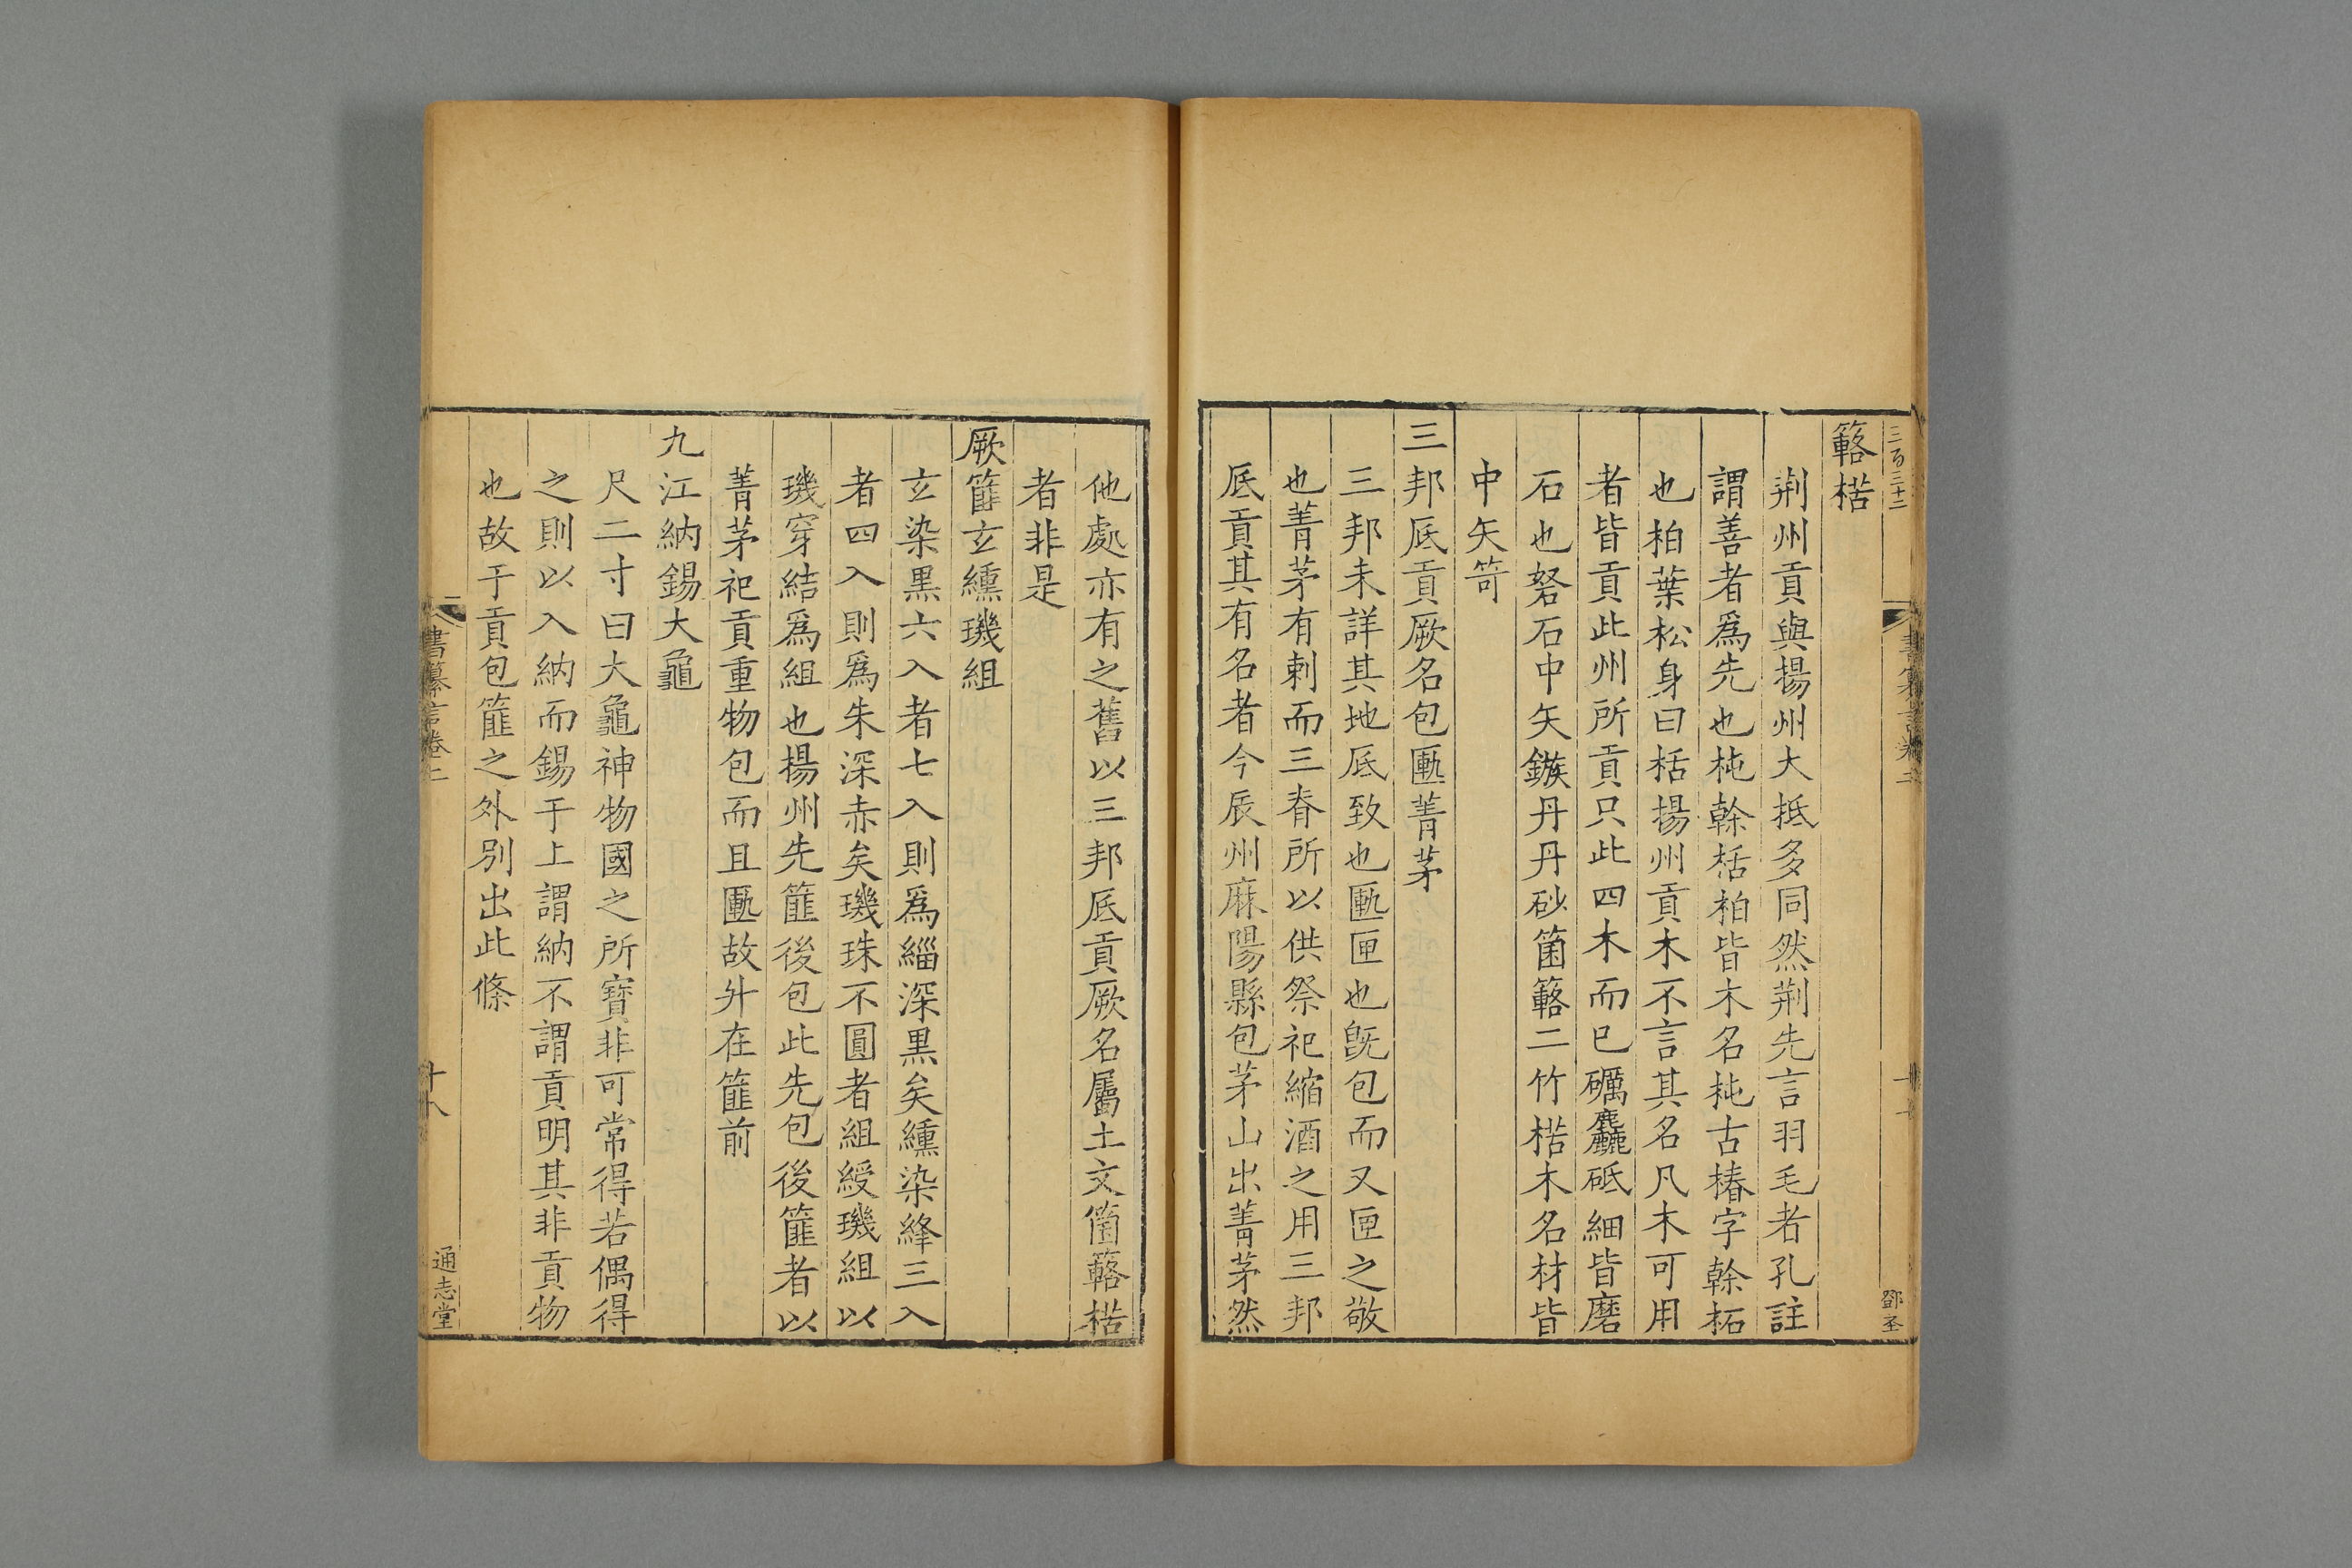 三百三十二
簵楛
荆州貢與揚州大抵多同然荆先言羽毛者孔註
謂善者爲先也杶榦栝柏皆木名杶古椿字榦柘
也柏葉松身曰栝揚州貢木不言其名凡木可用
者皆貢此州所貢只此四木而已礪麤砥細皆磨
石也砮石中矢鏃丹丹砂箘簵二竹楛木名材皆
中矢笴
三邦厎貢厥名包匭菁茅
三邦未詳其地厎致也匭匣也旣包而又匣之敬
也菁茅有刺而三脊所以供祭祀縮酒之用三邦
厎貢其有名者今辰州麻陽縣包茅山出菁茅然
鄧圣
他處亦有之舊以三邦厎貢厥名屬土文箘簵楛
者非是
厥篚玄纁璣組
玄染黑六入者七入則爲緇深黑矣纁染絳三入
者四入則爲朱深赤矣璣珠不圓者組綬璣組以
璣穿結爲組也揚州先篚後包此先包後篚者以
菁茅祀貢重物包而且匭故升在篚前
九江納錫大龜
尺二寸曰大龜神物國之所寶非可常得若偶得
之則以入納而錫于上謂納不謂貢明其非貢物
也故于貢包篚之外別出此條
書纂言卷二
十八
通志堂